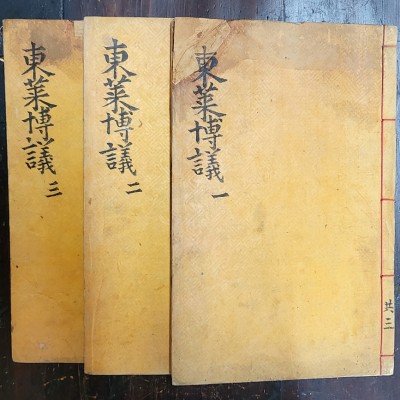 東萊博議 一
共三
東萊博議 二
東萊博議 三